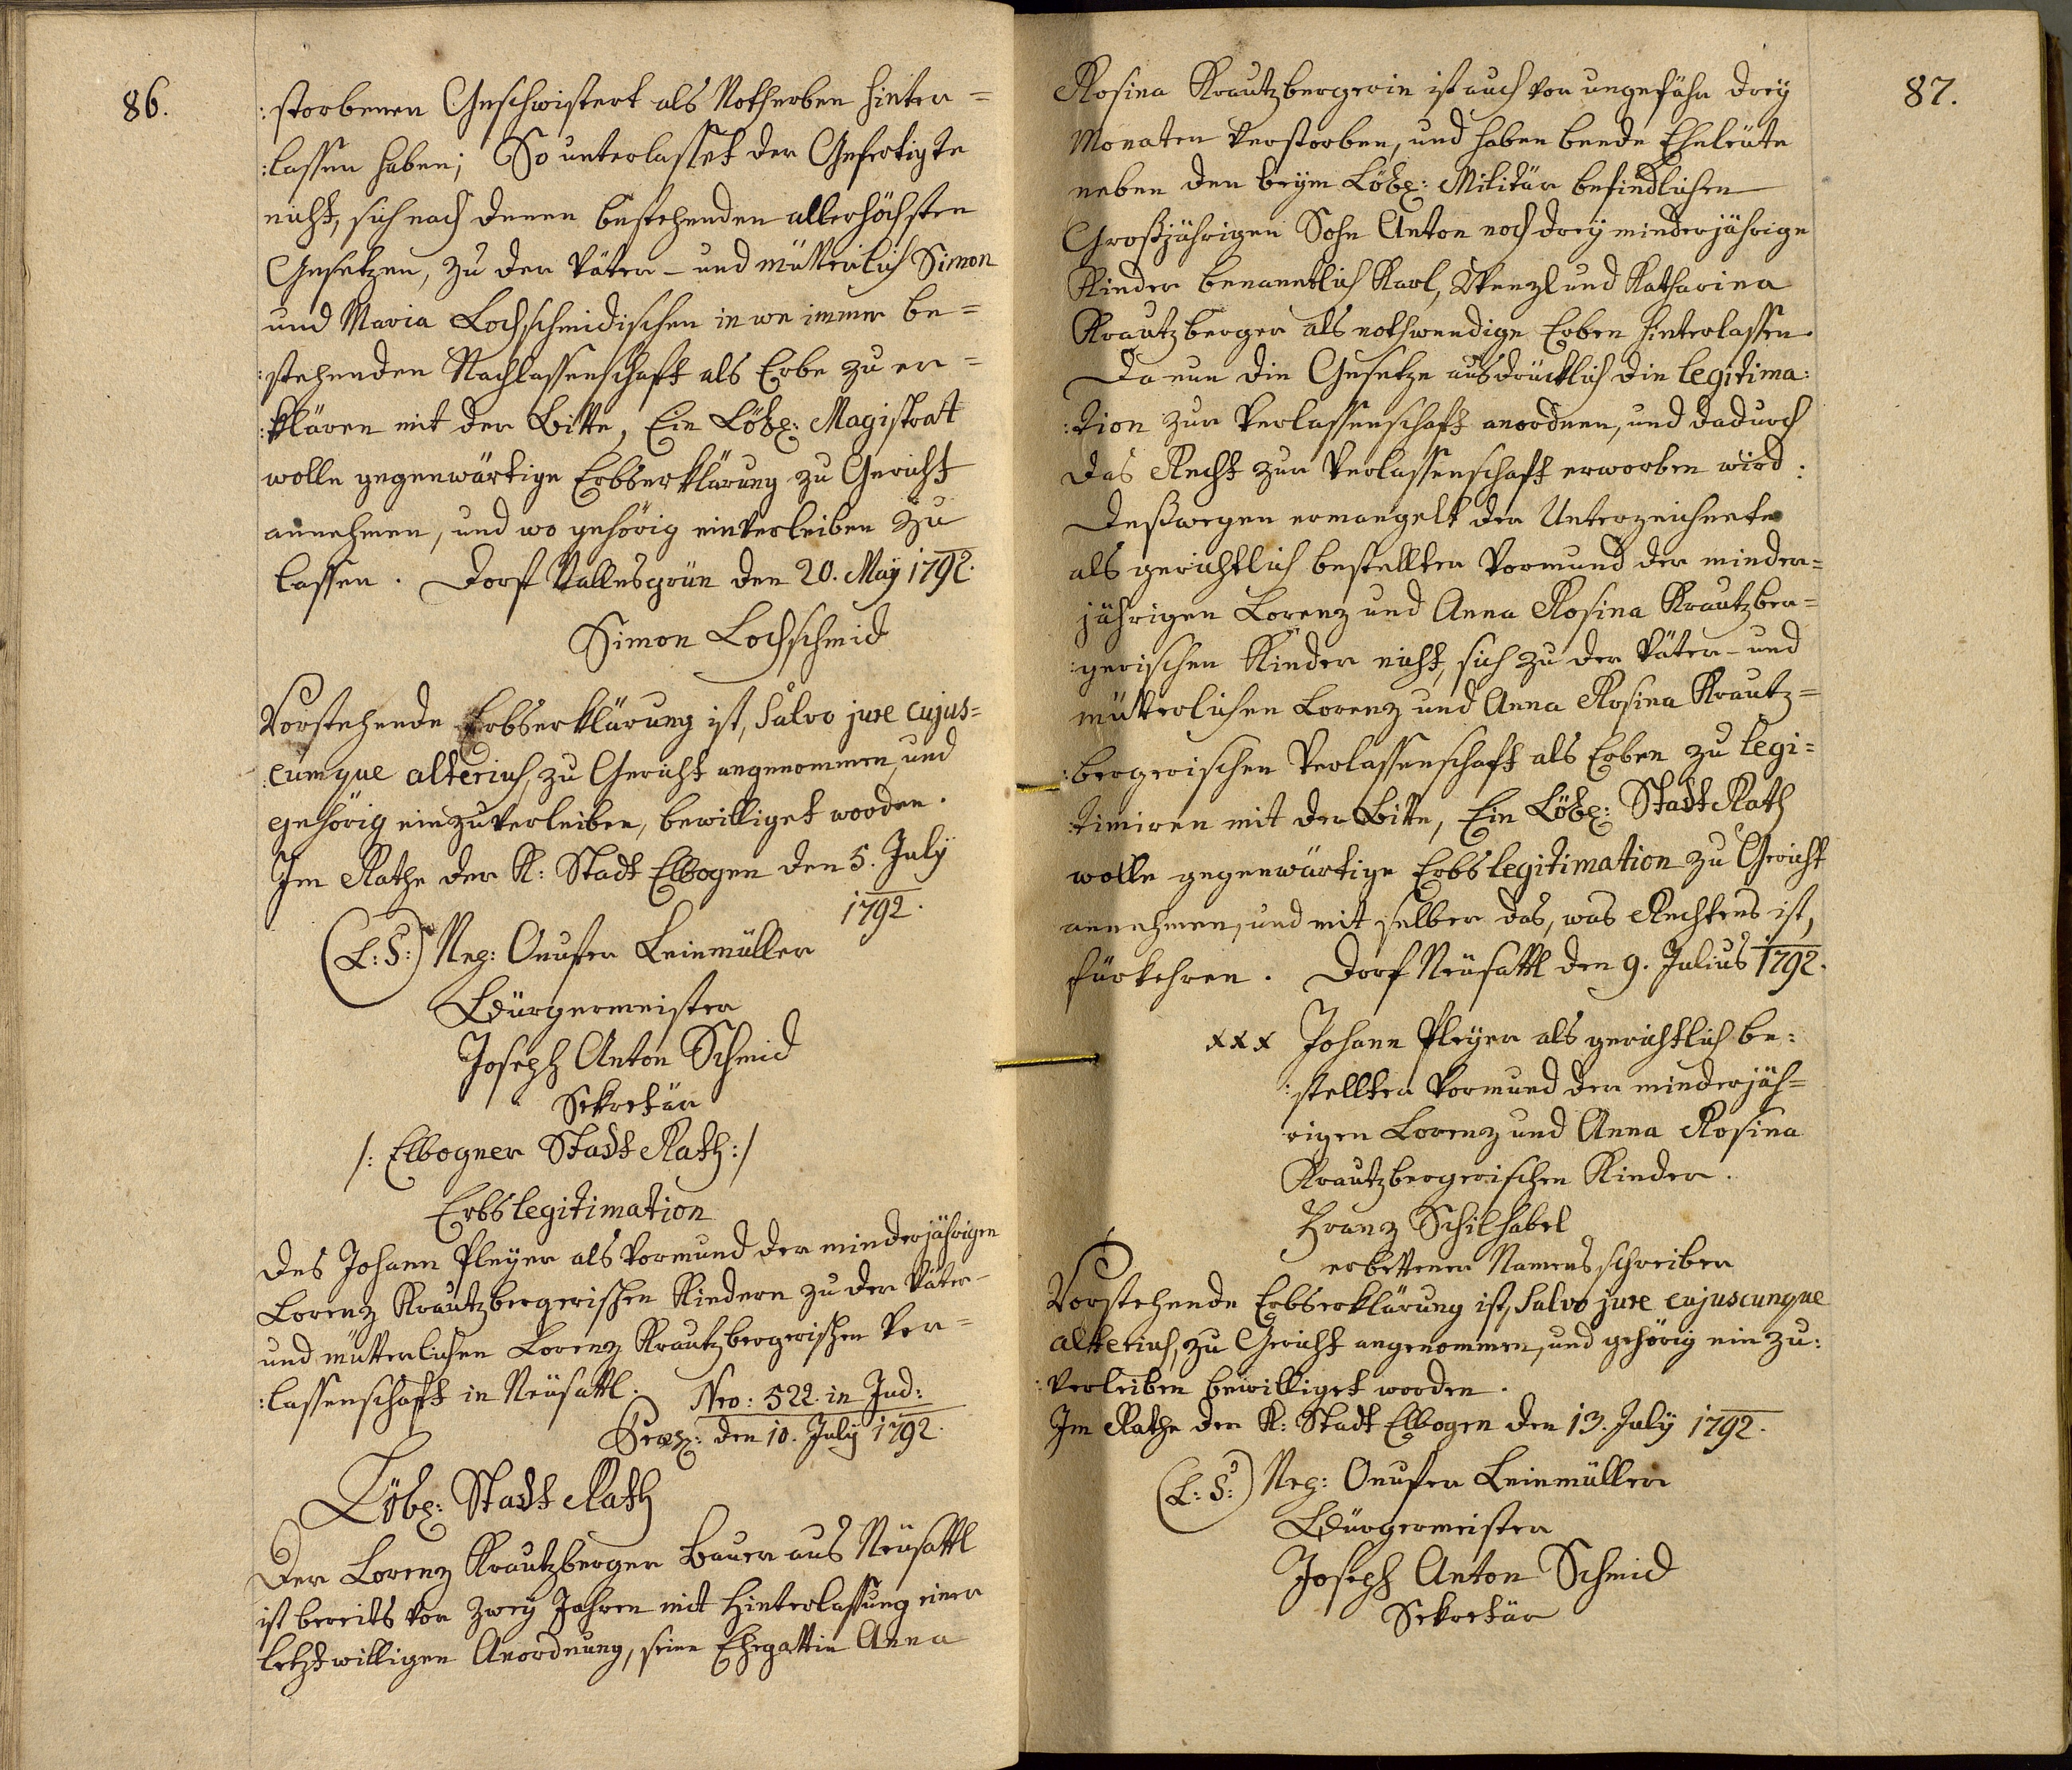 86.
:storbenen Geschwistert als Notherben hinter=
:lassen haben; So unterlasset der Gefertigte
nicht, sich nach denen bestehenden allerhöchsten
Gesetzen, zu der Väter- und mütterlich Simon
und Maria Lochschmidischen in we immer be=
:stehenden Nachlassenschaft als Erbe zu er=
:klären mit der Bitte, Ein Löbl: Magistrat
wolle gegenwärtige Erbserklärung zu Gericht
annehmen, und wo gehörig einverleiben zu
lassen. Dorf Vallesgrün den 20. Maÿ 1792.
Simon Lochschmid
Vorstehende Erbserklärung ist, Salvo jure cujus=
:cumque alterius, zu Gericht angenommen, und
gehörig einzuverleiben, bewilliget worden.
Im Rathe der K: Stadt Elbogen den 5. July
1792.
(L:S:) Neg: Onufer Leinmüller
Bürgermeister
Joseph Anton Schmid
Sekretär
/: Elbogner Stadt Rath :/
Erbslegitimation
des Johann Pleÿer als Vormund der minderjährigen
Lorenz Krautzbergerischen Kindern zu der Väter-
und mütterlichen Lorenz Krautzbergerischen Ver=
:lassenschaft in Neüsattl. Nro: 522. in Jud:
Præs: den 10. July 1792.
Löbl: Stadt Rath
Der Lorenz Krautzberger Bauer aus Neüsattl
ist bereits vor zweÿ Jahren mit Hinterlassung einer
letztwilligen Anordnung, seine Ehegattin Anna
87.
Rosina Krautzbergerin ist auch vor ungefähr dreÿ
Monaten verstorben, und haben beede Eheleüte
neben den beÿm Löbl: Militär befindlichen
Großjährigen Sohn Anton noch dreÿ minderjährige
Kinder benanntlich Karl, Wenzl und Katharina
Krautzberger als nothwendige Erben hinterlassen.
Da nun die Gesetze ausdrücklich die legitima:
:tion zur Verlassenschaft anordnen, und dadurch
das Recht zur Verlassenschaft erworben wird:
Deßwegen ermangelt der Unterzeichnete
als gerichtlich bestellter Vormund der minder=
jährigen Lorenz und Anna Rosina Krautzber=
:gerischen Kinder nicht, sich zu der Väter- und
mütterlichen Lorenz und Anna Rosina Krautz=
:bergerischen Verlassenschaft als Erben zu legi=
:timiren mit der Bitte, Ein Löbl: Stadt Rath
wolle gegenwärtige Erbslegitimation zu Gericht
annehmen, und mit selber das, was Rechtens ist,
fürkehren. Dorf Neüsattl den 9. Julius 1792.
xxx Johann Pleÿer als gerichtlich be:
:stellter Vormund der minderjäh=
rigen Lorenz und Anna Rosina
Krautzbergerischen Kinder.
Franz Schilhabel
erbettener Namensschreiber
Vorstehende Erbserklärung ist, Salvo jure cujuscunque
alterius, zu Gericht angenommen, und gehörig ein zu:
:verleiben bewilliget worden.
Im Rathe der K: Stadt Elbogen den 13. July 1792.
(L:S:) Neg: Onufer Leinmüller
Bürgermeister
Joseph Anton Schmid
Sekretär